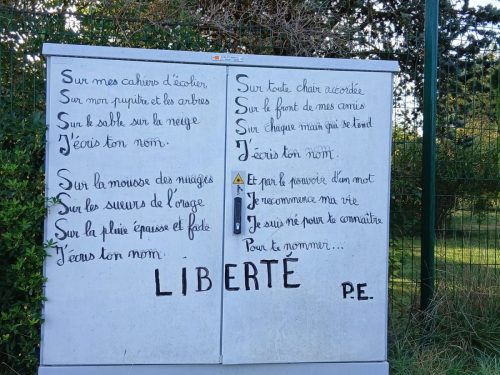 Sur mes cahiers d'écolier
Sur mon pupitre et les arbres
Sur le sable sur la neige
J'écris ton nom.
Sur la mousse des nuages
Sur les sueurs de l'orage
Sur la pluie épaisse et fade
J'écris ton nom.
Sur toute chair accordée
Sur le front de mes amis
Sur chaque main qui se tend
J'écris ton nom.
Et par le pouvoir d'un mot
Je recommence ma vie
Je suis né pour te connaître
Pour te nommer...
LIBERTÉ
P.E.